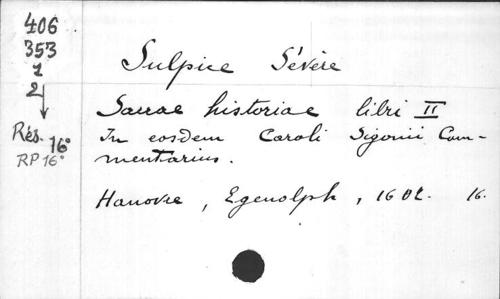 406
353
1
2
Rés. 16°
RP 16°
Sulpice Sévère
Sacrae historiae libri II
In eosdem Caroli Sigonii Com-
mentarius.
Hanovre, Egenolph, 1602. 16.